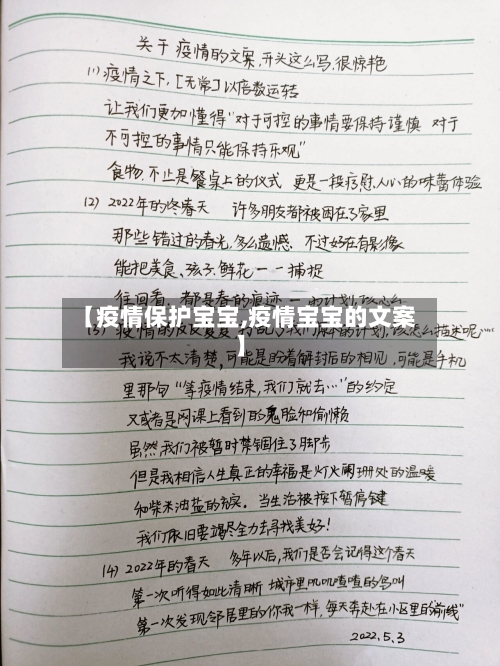 关于疫情的文案,开头这么写,很惊艳
(1)疫情之下,[无常]以倍数运转
让我们更加懂得"对于可控的事情要保持谨慎 对于
不可控的事情只能保持乐观"
食物,不止是餐桌上的仪式 更是一段疗慰人心的味蕾体验
(2) 2022年的春天 许多朋友都被困在了家里
那些错过的春光,多么遗憾. 不过好在有影像
能把美食、孩子、鲜花一一捕捉
往回看,都是春的痕迹
【疫情保护宝宝,疫情宝宝的文案
】
(3) 疫情的反反复复 我们 的计划,该怎么描述呢……
我说不太清楚,可能是盼着解封后的相见,可能是手机
里那句"等疫情结束,我们就去…"的约定
又或者是网课上看到的鬼脸和偷懒
虽然我们被暂时禁锢住了脚步
但是我相信人生真正的幸福是灯火阑珊处的温暖
和柴米油盐的充实. 当生活被按下暂停键
我们依旧要竭尽全力去寻找美好!
(4) 2022年的春天 多年以后,我们是否会记得这个春天
第一次听得如此清晰 城市里叽叽喳喳的鸟叫
第一次发现邻居里的你我一样,每天奔赴在小区里的"前线"
2022.5.3